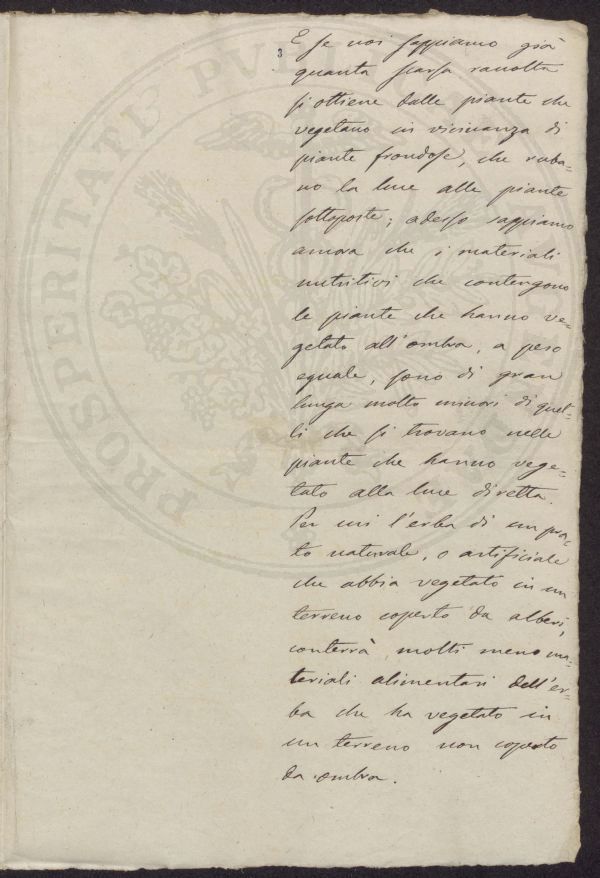 E se noi sappiamo già
3
quanta scarsa raccolta
si ottiene dalle piante che
vegetano in vicinanza di
piante frondose, che ruba-
no la luce alle piante
sottoposte; adesso sappiamo
ancora che i materiali
nutritivi che contengono
le piante che hanno ve-
getato all'ombra, a peso
eguale, sono di gran
lunga molto minori di quel-
li che si trovano nelle
piante che hanno vege-
tato alla luce diretta.
Per cui l'erba di un pra-
to naturale, o artificiale
che abbia vegetato in un
terreno coperto da alberi,
conterrà molti meno ma-
teriali alimentari dell'er-
ba che ha vegetato in
un terreno non coperto
da ombra.
PROSPERITATI PVBLICAE